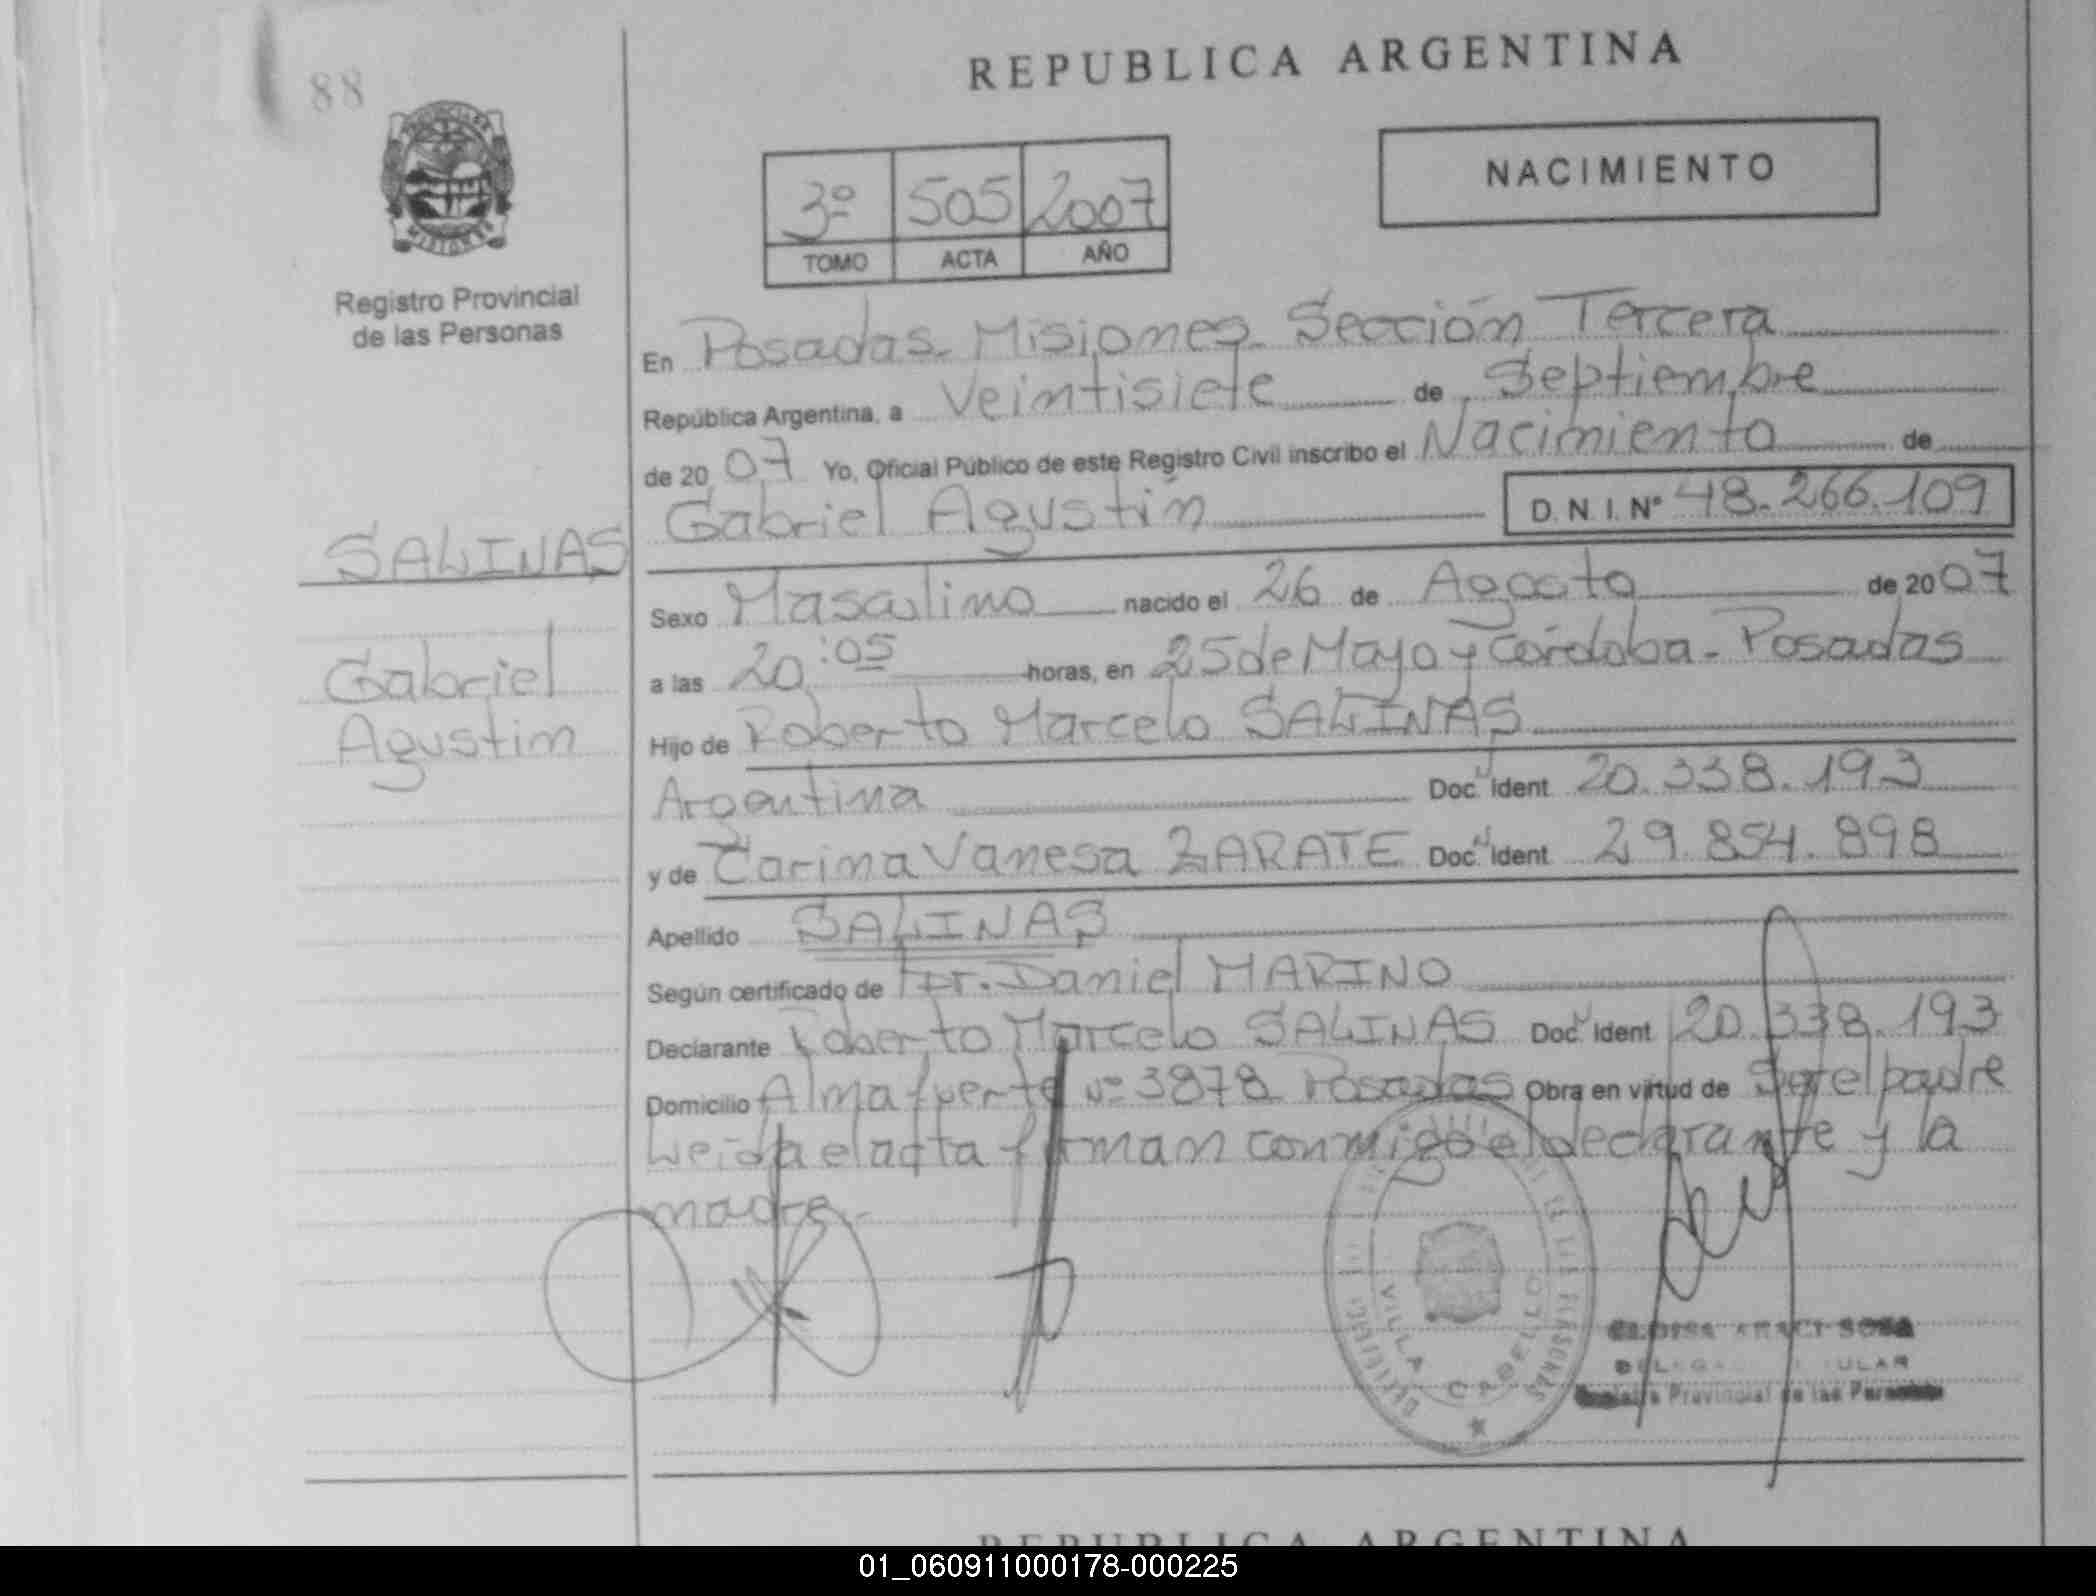 REPUBLICA ARGENTINA
88
NACIMIENTO
3º 505 2007
TOMO ACTA AÑO
MISIONES
Registro Provincial
de las Personas
En Posadas - Misiones - Sección Tercera
República Argentina, a Veintisiete de Septiembre
de 20 07 Yo, Oficial Público de este Registro Civil inscribo el Nacimiento de
SALINAS Gabriel Agustín D.N.I. Nº 48.266.109
Sexo Masculino nacido el 26 de Agosto de 20 07
Gabriel
Agustín
a las 20:05 horas, en 25 de Mayo y Córdoba - Posadas
Hijo de Roberto Marcelo SALINAS
Argentina Doc. Ident 20.338.193
y de Carina Vanesa ZARATE Doc. Ident 29.854.898
Apellido SALINAS
Según certificado de Dr. Daniel MARINO
Declarante Roberto Marcelo SALINAS Doc. Ident 20.338.193
Domicilio Almafuerte Nº 3878 Posadas Obra en virtud de Ser el padre
Leida el acta firman conmigo el declarante y la
madre.-
VILLA CABELLO
DE LAS PERSONAS
SOSA
Provincial de las Personas
REPUBLICA ARGENTINA
01_060911000178-000225